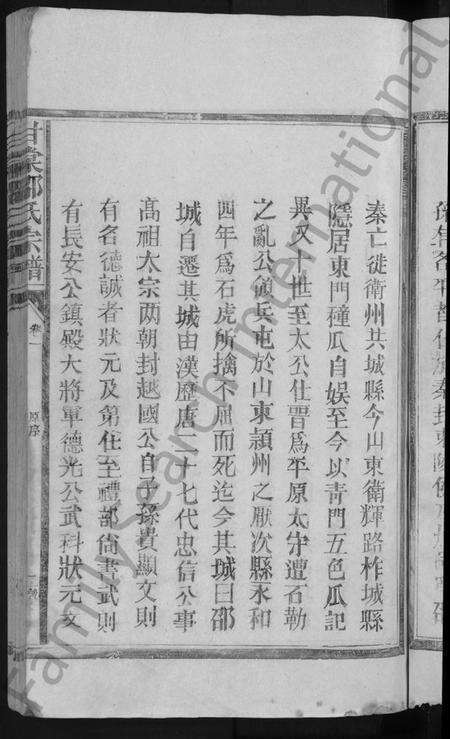 秦亡徙衛州共城縣今山東衛輝路柞城縣
隱居東門種瓜自娛至今以青門五色瓜記
異又十世至太公仕晉為平原太守遭石勒
之亂公領兵屯於山東潁州之厭次縣永和
四年為石虎所擒不屈而死迄今其城曰邵
城自遷其城由漢歷唐二十七代忠信公事
高祖太宗两朝封越國公自子孫貴顯文則
有名德誠者狀元及第仕至禮部尚書武則
有長安公鎮殿大將軍德光公武科狀元文
甘棠邵氏宗譜
卷一
原序
FamilySearch International